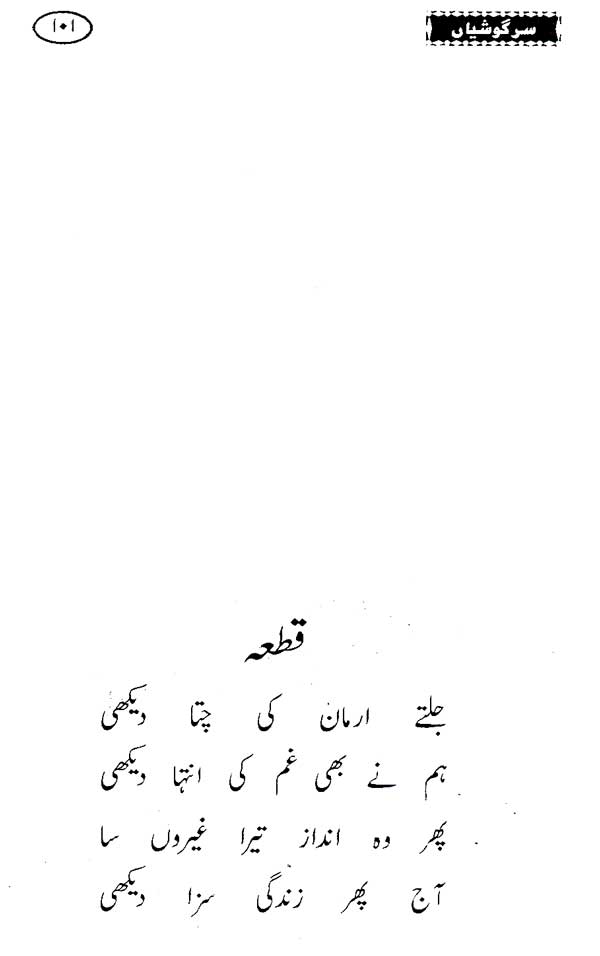 سرگوشیاں
۱۰۱
قطعہ
جلتے ارمان کی چتا دیکھی
ہم نے بھی غم کی انتہا دیکھی
پھر وہ انداز تیرا غیروں سا
آج پھر زندگی سزا دیکھی